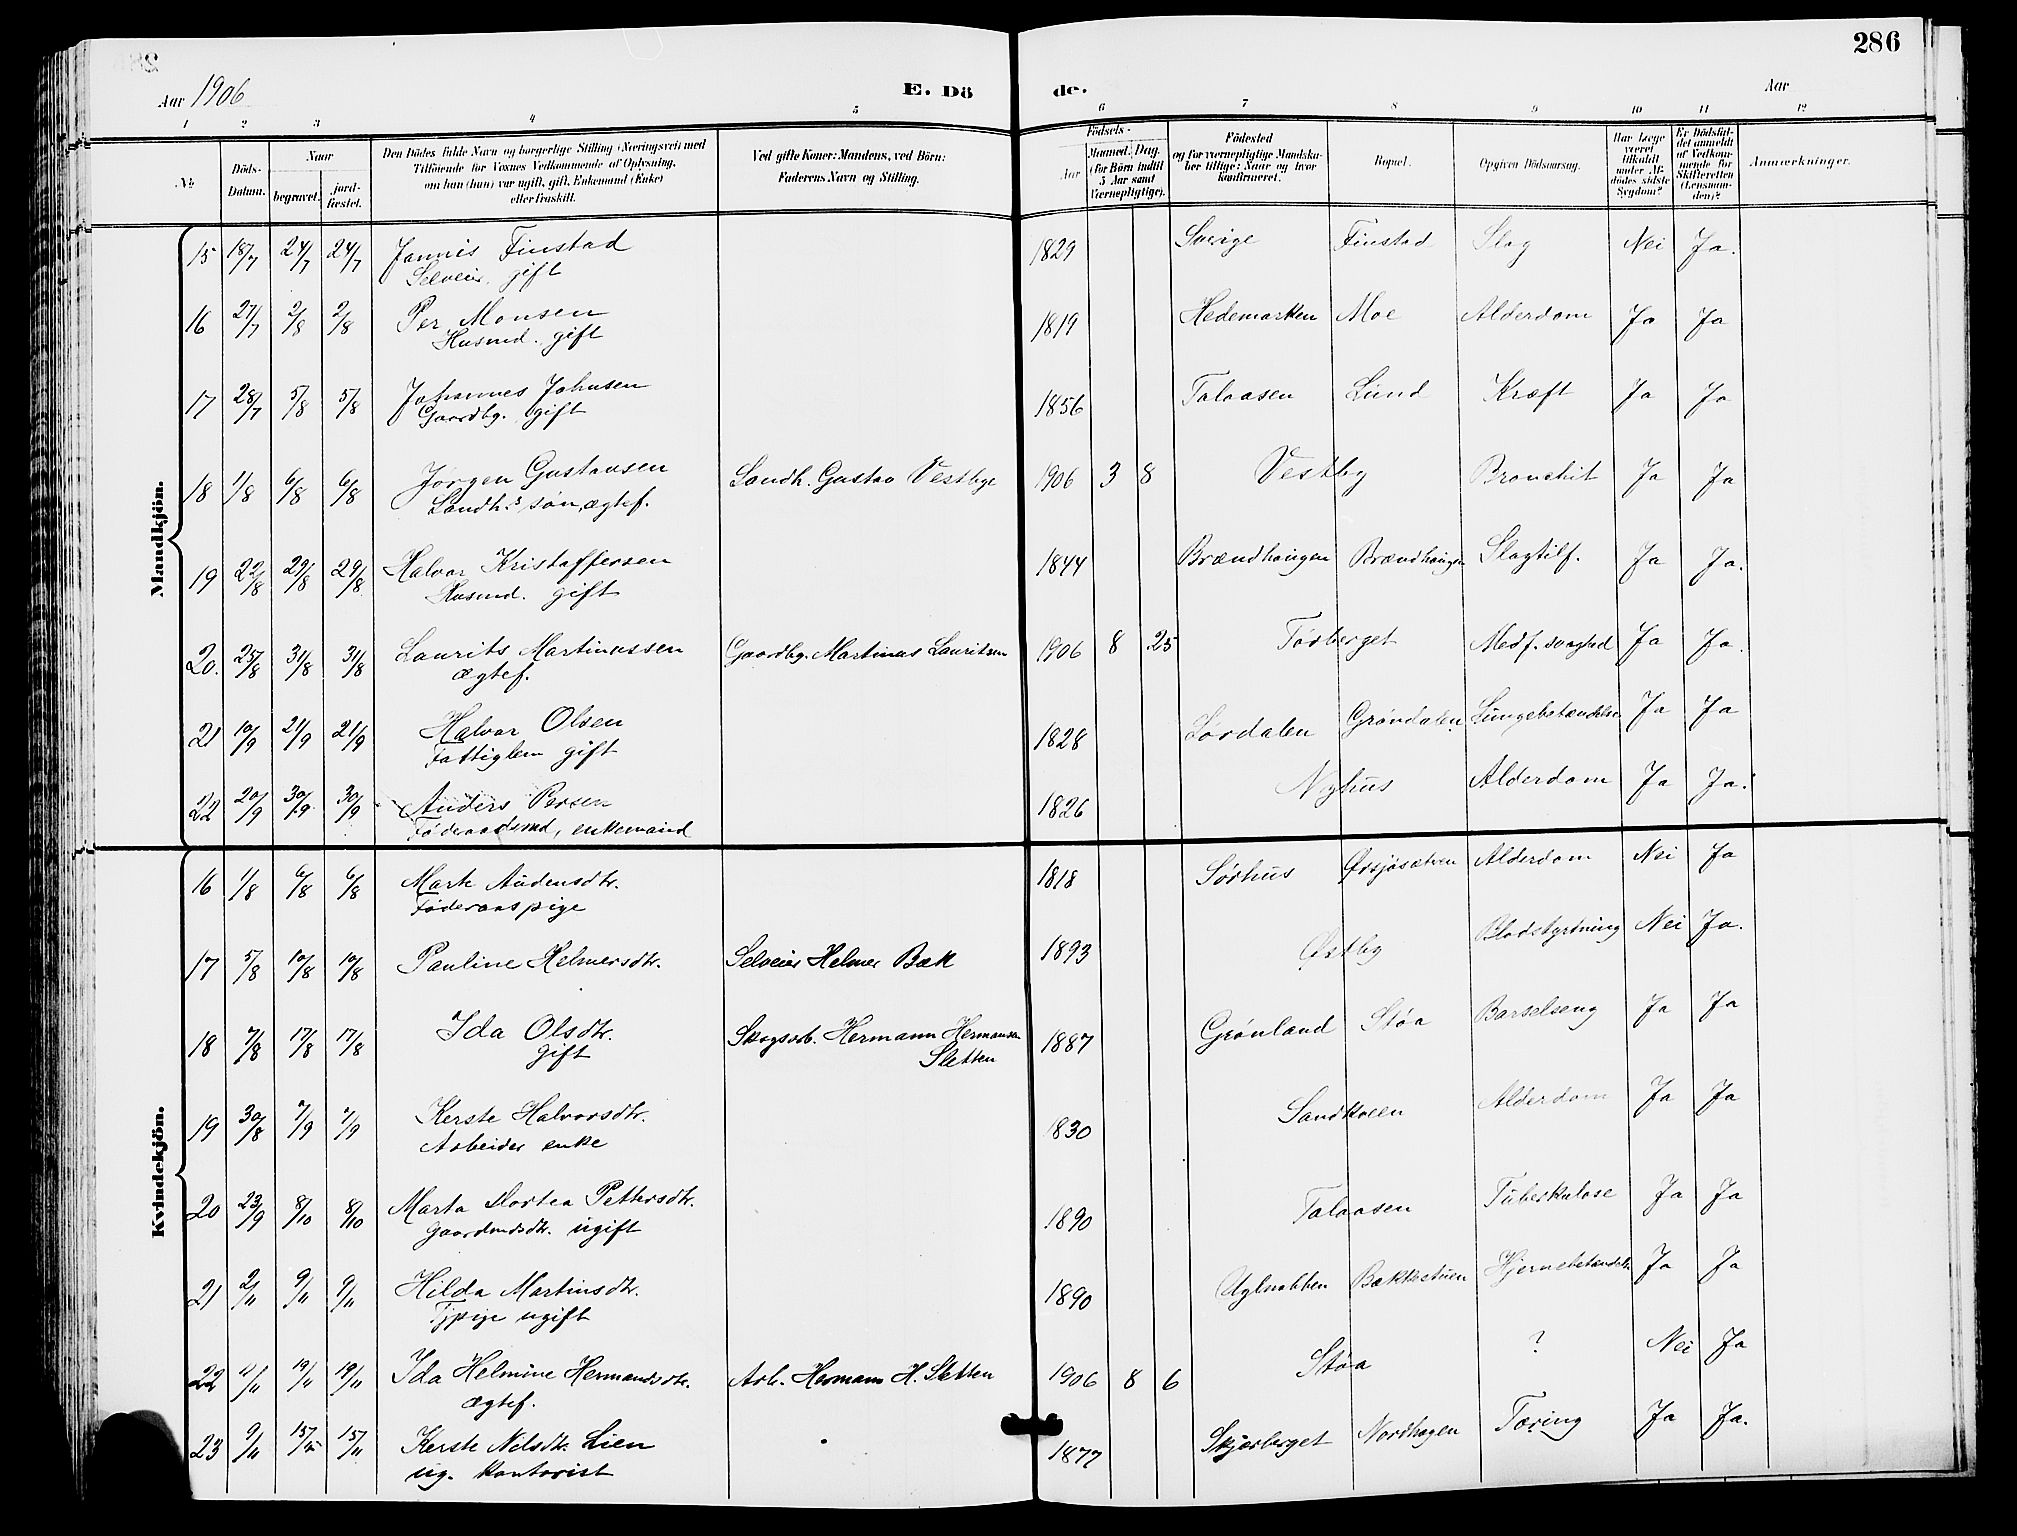 286
Aar 1906
E. Dö
de.
Aar
1 2 3 4 5 6 7 8 9 10 11 12
No
Döds-Datum.
Naar
begravet.
jord-fæstet.
Den Dödes fulde Navn og borgerlige Stilling (Næringsvei) med
Tilföiende for Voxnes Vedkommende af Oplysning,
om han (hun) var ugift, gift, Enkemand (Enke)
eller fraskilt.
Ved gifte Koner: Mandens, ved Börn:
Faderens Navn og Stilling.
Födsels-
Aar
Maaned. Dag.
(for Börn indtil
5 Aar samt
Værnepligtige).
Födested
og for værnepligtige Mandska-
ber tillige: Naar og hvor
konfirmeret.
Bopæl.
Opgiven Dödsaarsag.
Har Læge
været
tilkaldt
under Af-
dödes sidste
Sygdom?
Er Dödsfal-
det anmeldt
af Vedkom-
mende for
Skifteretten
(Lensman-
den)?
Anmærkninger.
Mandkjön.
15 18/7 24/7 24/7 Jannis Finstad 1829 Sverige Finstad Slag Nei Ja.
Selveier, gift
16 27/7 2/8 2/8 Per Monsen 1819 Hedemarken Moe Alderdom Ja Ja
Husmd. gift
17 28/7 5/8 5/8 Johannes Johnsen 1856 Talaasen Lund Kræft Ja Ja
Gaardbg. gift
18 1/8 6/8 6/8 Jørgen Gustavsen Landh. Gustav Vestbye 1906 3 8 Vestby Bronchit Ja Ja
Landh.s søn, ægtef.
19 22/8 29/8 29/8 Halvor Kristoffersen 1844 Brændhaugen Brændhaugen Slagtilf. Ja Ja.
Husmd. gift
20. 25/8 31/8 31/8 Laurits Martinussen Gaardbg. Martinus Lauritsen 1906 8 25 Tørberget Medf. svaghed Ja Ja.
ægtef.
21 10/9 21/9 21/9 Halvor Olsen 1828 Lørdalen Grøndalen Lungebetændelse Ja Ja
Fattiglem gift
22 20/9 30/9 30/9 Anders Persen 1826 Nyhus Alderdom Ja Ja.
Føderaadsmd, enkemand
Kvindekjön.
16 1/8 6/8 6/8 Marte Audensdtr. 1818 Sørhus Ørsjøsætren Alderdom Nei Ja
Føderaaspige
17 5/8 10/8 10/8 Pauline Helmersdtr. Selveier Helmer Bæk 1893 Østby Blodstyrtning Nei Ja.
18 7/8 17/8 17/8 Ida Olsdtr. Skogsarb. Hermann Hermansen 1887 Grønland Støa Barselseng Ja Ja
gift Sletten
19 30/8 7/9 7/9 Kerste Halvorsdtr. 1830 Sandkveen Alderdom Ja Ja
Arbeider enke
20 23/9 8/10 8/10 Marta Dortea Pettersdtr. 1890 Talaasen Tuberkulose Ja Ja
Gaardmdsdtr. ugift
21 2/11 9/11 9/11 Hilda Martinsdtr. 1890 Uglnabben Bækkestuen Hjernebetændelse Ja Ja
Tjpige ugift
22 11/11 19/11 19/11 Ida Helmine Hermansdtr. Arb. Hermann H. Sletten 1906 8 6 Støa ? Nei Ja
ægtef.
23 9/11 15/11 15/11 Kerste Nilsdtr. Lien 1877 Skjærberget Nordhagen Tæring Ja Ja.
ug. kontorist